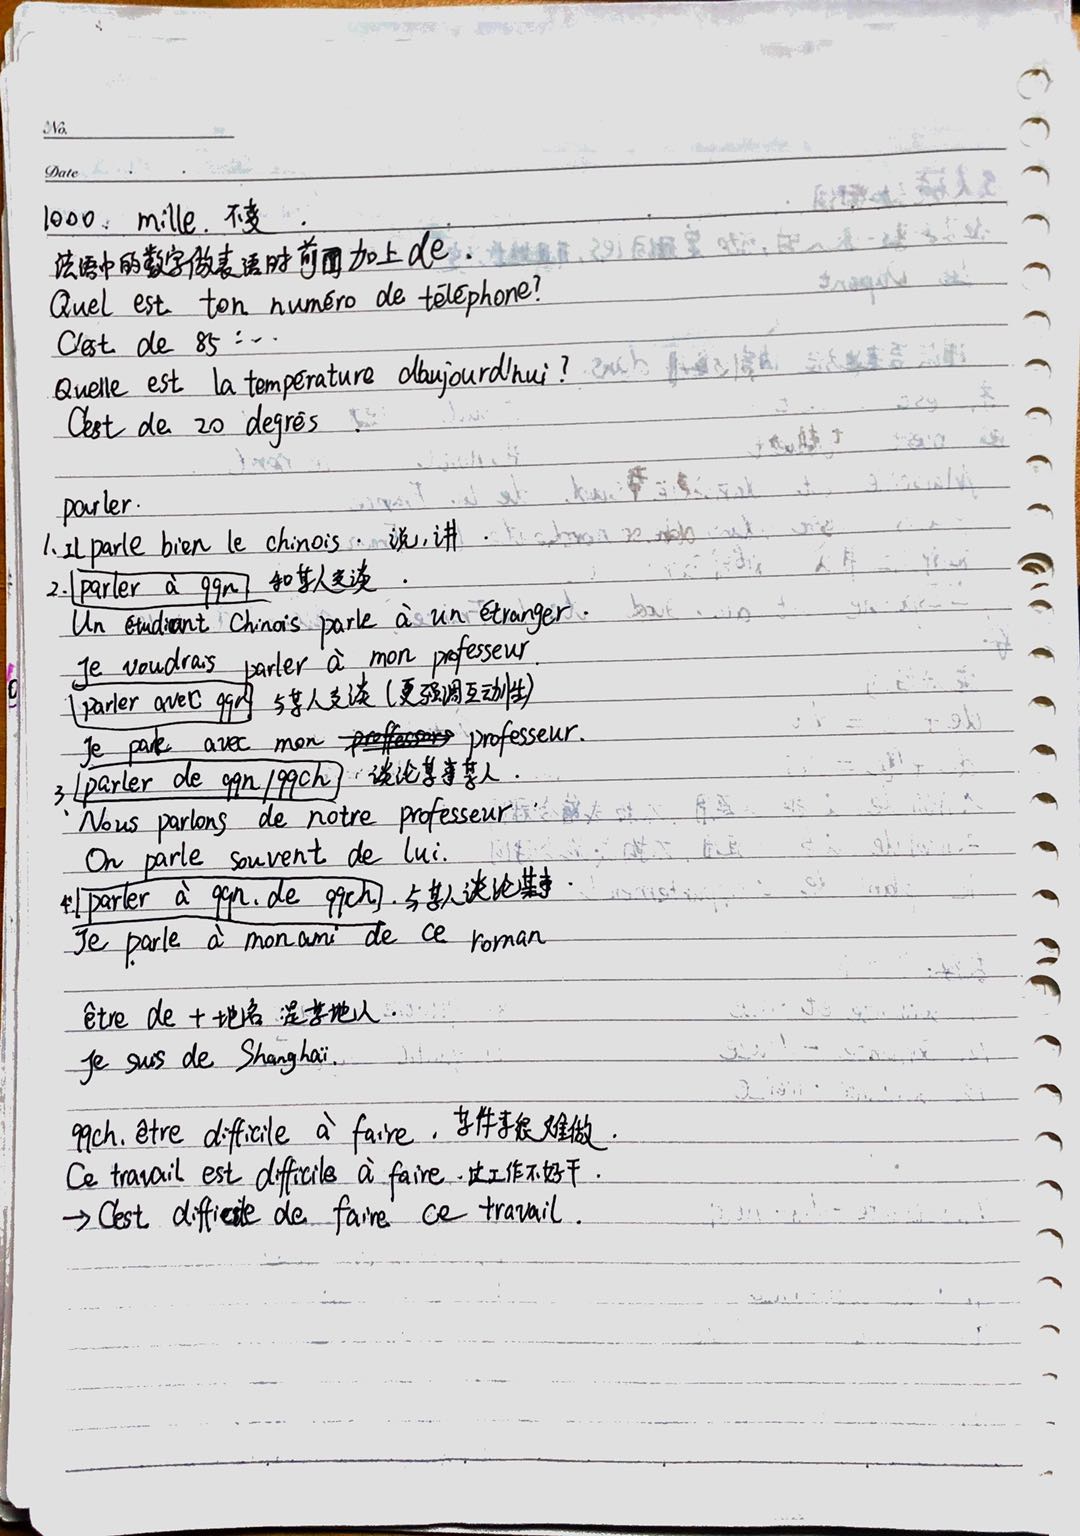 No.
Date
1000. mille. 不变.
法语中的数字做表语时前面加上 de.
Quel est ton numéro de téléphone?
C'est de 85 :...
Quelle est la température d'aujourd'hui?
C'est de 20 degrés.
parler.
1. Il parle bien le chinois. 说,讲.
2. parler à qqn 和某人交谈.
Un étudiant Chinois parle à un étranger.
Je voudrais parler à mon professeur.
parler avec qqn 与某人交谈 (更强调互动性)
Je parle avec mon professeur.
3. parler de qqn/qqch 谈论某事某人.
Nous parlons de notre professeur.
On parle souvent de lui.
4. parler à qqn. de qqch. 与某人谈论某事.
Je parle à mon ami de ce roman
être de + 地名 是某地人.
Je suis de Shanghaï.
qqch. être difficile à faire. 某件事很难做.
Ce travail est difficile à faire. 此工作不好干.
→ C'est difficile de faire ce travail.